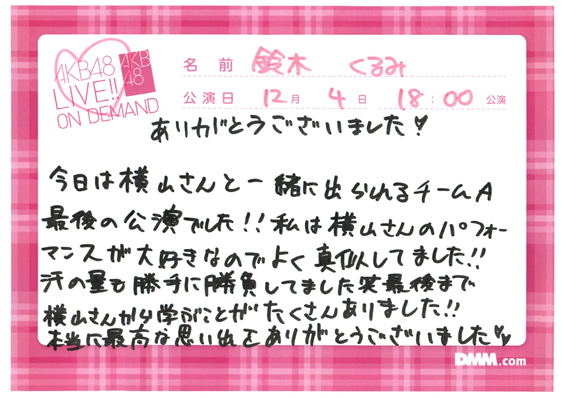 AKB48
LIVE!!
ON DEMAND
AKB
48
名前 鈴木 くるみ
公演日 12月 4日 18:00公演
ありがとうございました♡
今日は横山さんと一緒に出られるチームA
最後の公演でした!!私は横山さんのパフォー
マンスが大好きなのでよく真似してました!!
汗の量も勝手に勝負してました笑最後まで
横山さんから学ぶことがたくさんありました!!
本当に最高な思い出をありがとうございました♡♡
DMM.com